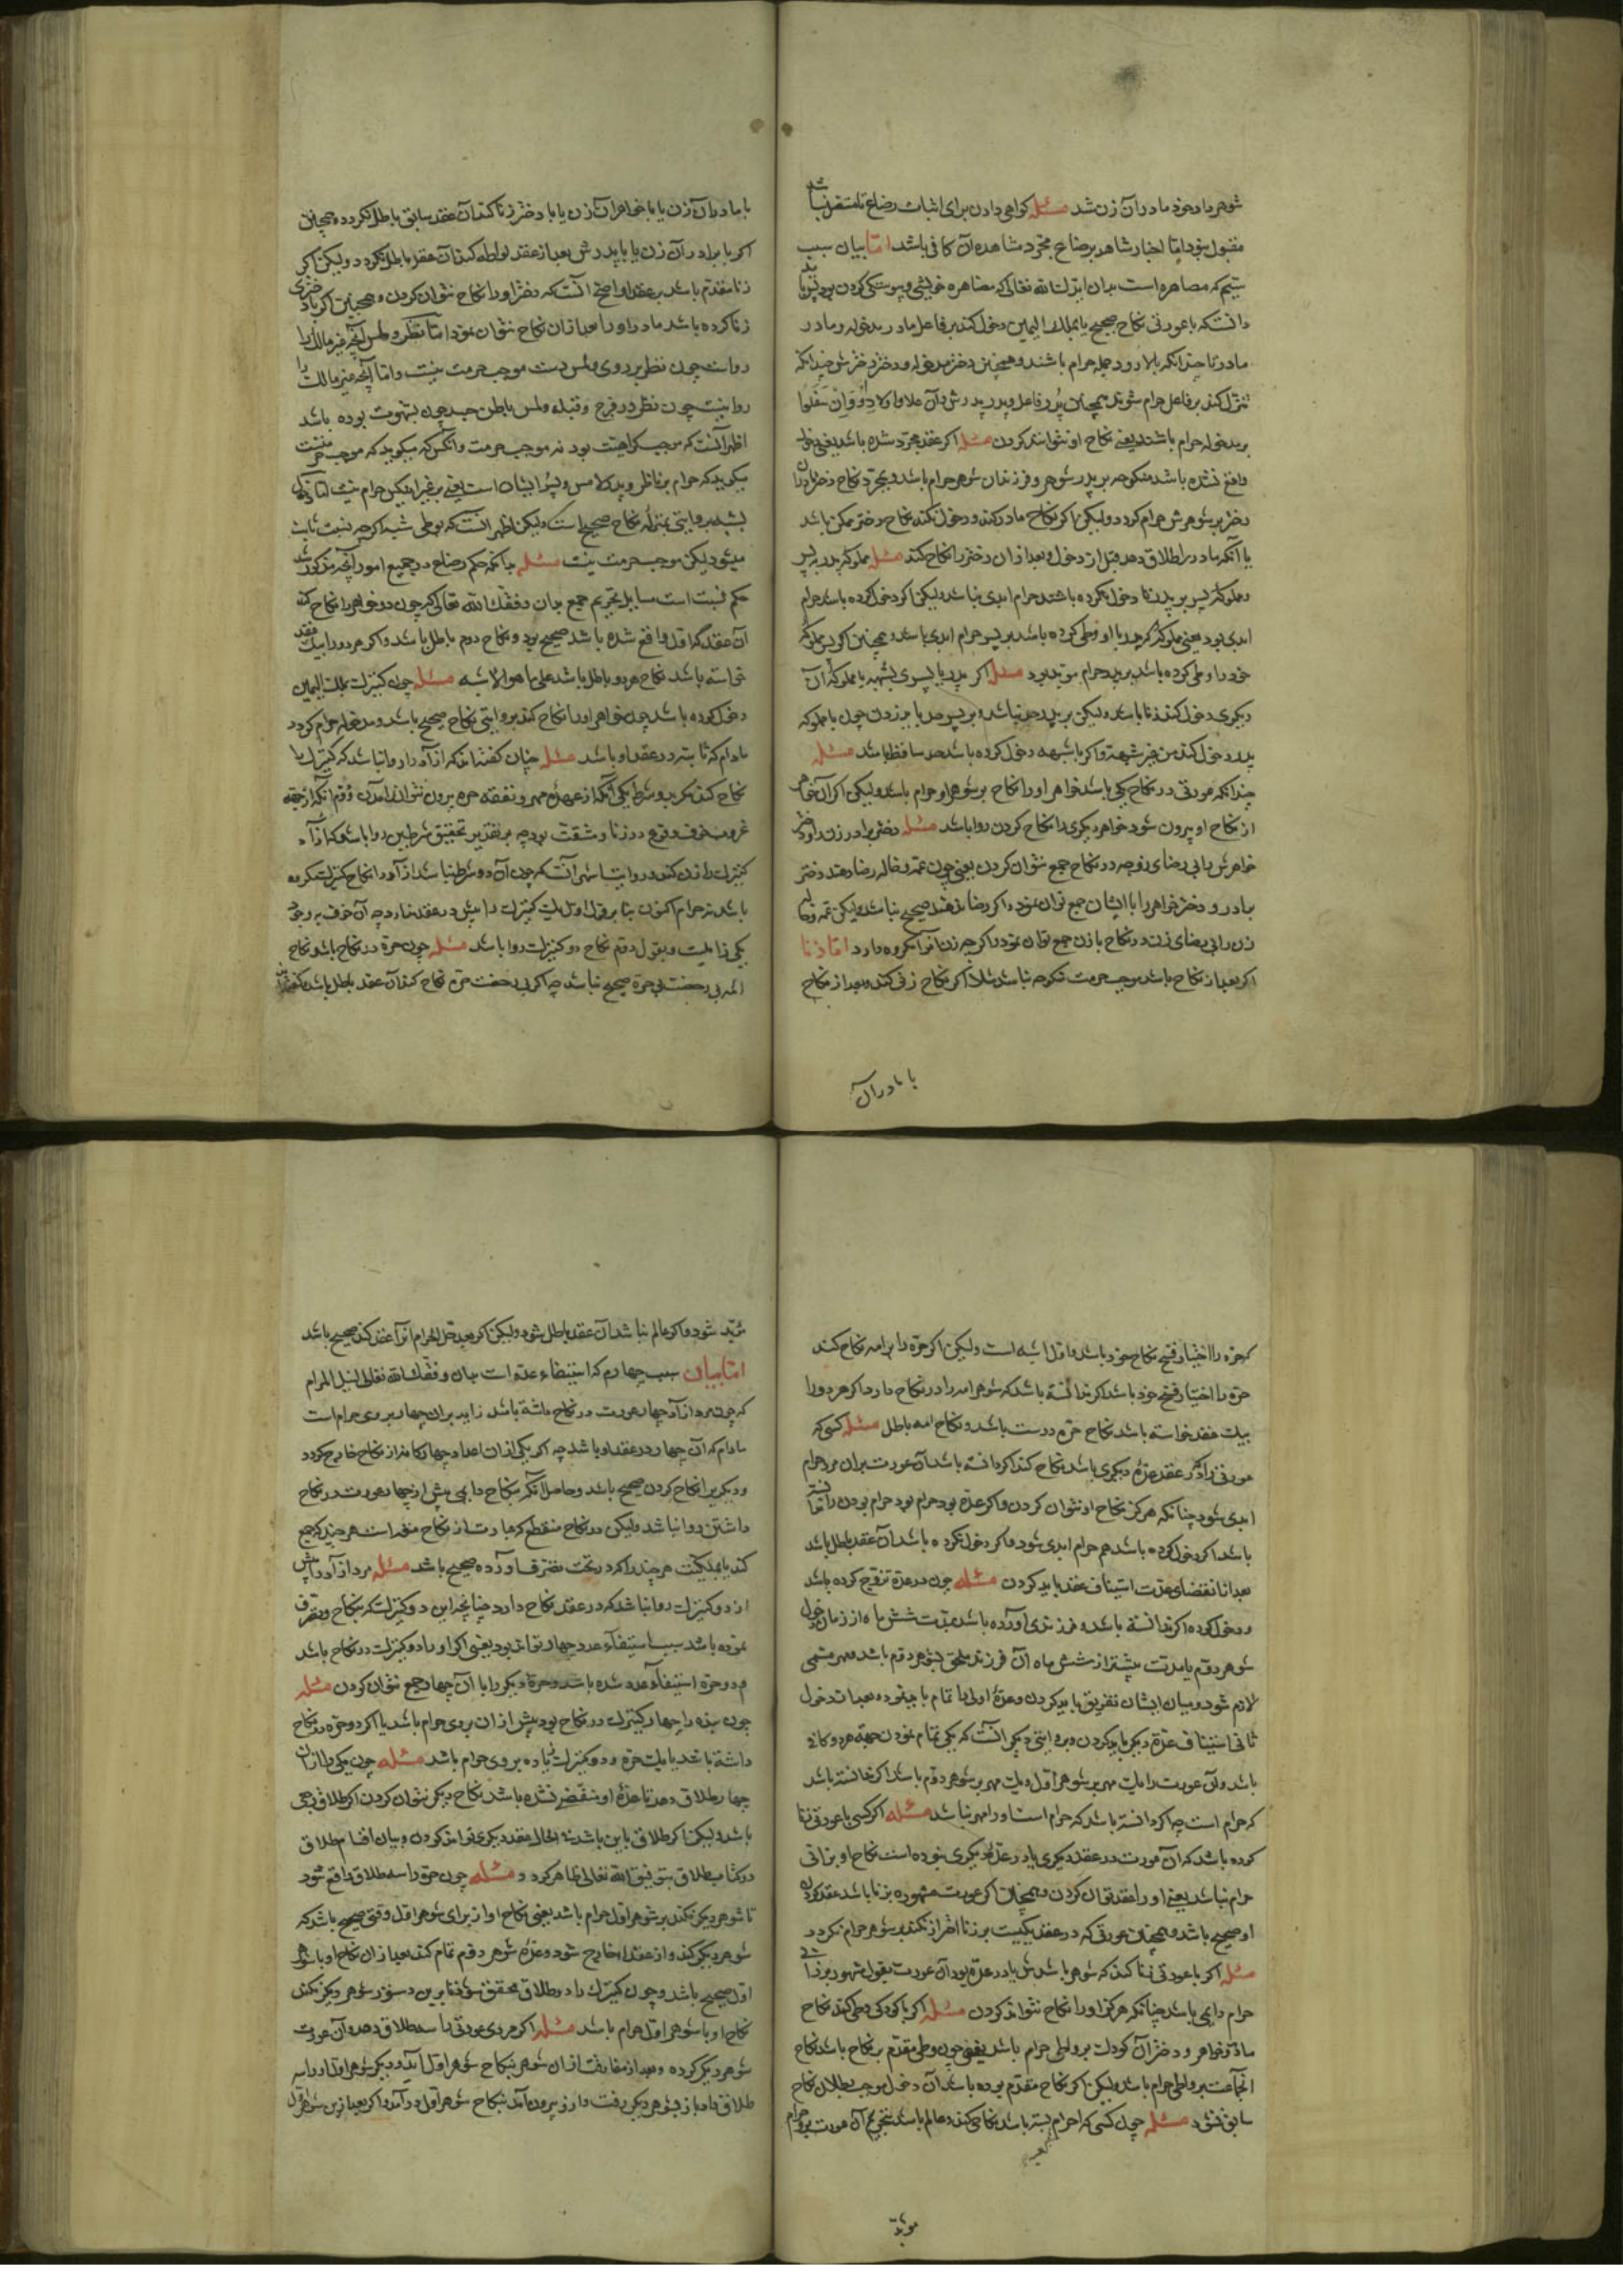 شوهر داد خود مادر آن زن شد مسئله کواهی دادن برای اثبات رضاع تا مستقر نباشد
مقبول نبود امّا اخبار شاهد بر رضاع مجرّد مشاهده آن کافی باشد امّا بیان سبب
سیّم که مصاهره است بدان ایّدک الله تعالی که مصاهره خویشی و پیوستکی کردن بود
دانست که با عورتی نکاح صحیح یا بملک الیمین دخول کند بر فاعل مادر مدخوله و مادر
مادر تا چندانکه بالا رود جمله حرام باشند و همچنین دختر مدخوله و دختر دخترش چندانکه
تنزّل کند بر فاعل حرام شوند همچنان پدر فاعل و پدر پدرش و ان علا و اولاد او و ان سفلوا
بر مدخوله حرام باشند یعنی نکاح او نتوانند کردن مسئله اکر عقد مجرّد شده باشد یعنی دخول
واقع نشده باشد منکوحه بر پدر شوهر و فرزندان شوهر حرام باشد و بمجرّد نکاح دختر مادر
دختر بر شوهرش حرام کردد ولیکن اکر نکاح مادر کند و دخول نکند نکاح دختر ممکن باشد
یا آنکه مادر را طلاق دهد قبل از دخول و بعد از ان دختر را نکاح کند مسئله مملوکه پدر بر پسر
و مملوکه پسر بر پدر تا دخول نکرده باشند حرام ابدی نباشد ولیکن اکر دخول کرده باشند حرام
ابدی بود یعنی مملوکه که پدر با او وطی کرده باشد بر پسر حرام ابدی باشد و همچنین اکر پسر مملوکه
خود را وطی کرده باشد بر پدر حرام موبّد بود مسئله اکر پدر یا پسر بی شبهه با مملوکه آن
دیکری دخول کند زنا باشد ولیکن بر پدر حد نباشد و بر پسر حد یا بر زدن چون با مملوکه
پدر دخول کند من غیر شبهة و اکر با شبهه دخول کرده باشد حد ساقط باشد مسئله
چندانکه عورتی در نکاح یکی باشد خواهر او را نکاح بر شوهر او حرام باشد ولیکن اکر آن خواهر
از نکاح او بیرون شود خواهر دیکری را نکاح کردن روا باشد مسئله دختر برادر زن و دختر
خواهرش را بی رضای زوجه در نکاح جمع نتوان کردن یعنی چون عمّه و خاله رضا دهند دختر
برادر و دختر خواهر را با ایشان جمع توان نمود و اکر رضا ندهند صحیح نباشد ولیکن عمّه و خاله
زن را بی رضای زن در نکاح با زن جمع توان نمود اکرچه زن آنرا مکروه دارد امّا زنا
اکر بعد از نکاح باشد موجب حرمت منکوحه نباشد مثلا اکر نکاح زنی کند و بعد از نکاح
با مادر آن
با مادر آن زن یا با خواهر آن زن یا با دختر زنا کند آن عقد سابق باطل نکردد و همچنین
اکر با برادر آن زن یا با پدرش بعد از عقد لواطه کند آن عقد باطل نکردد ولیکن اکر
زنا مقدّم باشد بر عقد اصح آنست که دختر او را نکاح نتوان کردن و همچنین اکر با دختری
زنا کرده باشد مادر او را بعد از ان نکاح نتوان نمود امّا نظر و لمس آنچه غیر مالک را
رواست چون نظر بر روی و لمس دست موجب حرمت نیست و امّا آنچه غیر مالک را
روا نیست چون نظر در فرج و قبله و لمس باطن جسد چون بشهوت بوده باشد
اظهر آنست که موجب کراهیت بود نه موجب حرمت و آنکس که میکوید که موجب حرمتست
میکوید که حرام بر ناظر و پدر لامس و پسر ایشان است یعنی بر غیر اینکس حرام نیست امّا وطی
بشبه بروایتی بمنزله نکاح صحیح است ولیکن اظهر آنست که بوطی شبه اکرچه نسب ثابت
میشود لیکن موجب حرمت نیست مسئله بدانکه حکم رضاع در جمیع امور آنچه مذکور شد
حکم نسب است مسایل تحریم جمع بدان وفّقک الله تعالی که چون دو خواهر را نکاح کند
آن عقد که اوّل واقع شده باشد صحیح بود و نکاح دوم باطل باشد و اکر هر دو را بیک عقد
خواسته باشد نکاح هر دو باطل باشد علی ما هو الاشبه مسئله چون کنیزک بملک الیمین
دخول کرده باشد چون خواهر او را نکاح کند بروایتی نکاح صحیح باشد و مدخوله حرام کردد
مادام که ثانیه در عقد او باشد مسئله چنان کفته‌اند که آزاد را روا نباشد که کنیزک را
نکاح کند مکر بدو شرط یکی آنکه از عهده مهر و نفقه حره بیرون نتواند آمدن دوّم آنکه از جهة
عزوبت خوف وقوع در زنا و مشقّت بود چه بر تقدیر تحقیق شرطین روا باشد که آزاد
کنیزک را زن کند و روایت اشهر آنست که چون آن دو شرط نباشد آزاد را نکاح کنیزک مکروه
باشد نه حرام اکنون بنا بر قول اوّل یک کنیزک را بیش در عقد ندارد چه آن خوف بوجود
یکی زایلست و بقول دوّم نکاح دو کنیزک روا باشد مسئله چون حرّه در نکاح باشد نکاح
امه بی رخصت حرّه صحیح نباشد چه اکر بی رخصت حرّه نکاح کند آن عقد باطل باشد
که حرّه را اختیار فسخ نکاح خود باشد و اوّل اشبه است ولیکن اکر حرّه را بر امه نکاح کند
حرّه را اختیار فسخ خود باشد اکر ندانسته باشد که شوهر امه را در نکاح دارد و اکر هر دو را
بیک عقد خواسته باشد نکاح حرّه درست باشد و نکاح امه باطل مسئله کسی که
عورتی را که در عقد عدّه دیکری باشد نکاح کند اکر دانسته باشد آن عورت بران مرد حرام
ابدی شود چنانکه هرکز نکاح او نتوان کردن و اکر عدّه بود حرام بود حرام بودن را ندانسته
باشد اکر دخول کرده باشد هم حرام ابدی شود و اکر دخول نکرده باشد آن عقد باطل باشد
بعد از انقضای عدّت استیناف عقد باید کردن مسئله چون در عدّه تزویج کرده باشد
و دخول کرده اکر ندانسته باشد و فرزندی آورده باشد بمدّت شش ماه از زمان دخول
شوهر دوّم یا مدّت بیشتر از شش ماه آن فرزند ملحق بشوهر دوّم باشد و مهر مسمّی
لازم شود و میان ایشان تفریق باید کردن و عدّه اولی را تمام باید نمود و بعد ازان دخول
ثانی استیناف عدّه دیکر باید کردن و بروایتی دیکر آنست که یکی تمام نمودن جهة هر دو کافی
باشد و آن عورت را یک مهر بر شوهر اوّل و یک مهر بر شوهر دوّم باشد اکر ندانسته باشد
که حرام است چه اکر دانسته باشد که حرام است او را مهر نباشد مسئله اکر کسی با عورتی زنا
کرده باشد که آن عورت در عقد دیکری یا در عدّه دیکری نبوده است نکاح او بر زانی
حرام نباشد یعنی او را عقد توان کردن و همچنان اکر عورت مشهوره بزنا باشد عقد کردن
او صحیح باشد و همچنان عورتی که در عقد یکیست بر زنا احراز نکند بر شوهر حرام نکردد
مسئله اکر با عورتی زنا کند که شوهر باشدش یا در عدّه بود آن عورت بقول مشهور بر زانی
حرام دایمی باشد چنانکه هرکز او را نکاح نتواند کردن مسئله اکر با کودکی وطی کند نکاح
مادر و خواهر و دختر آن کودک بر واطی حرام باشد یعنی چون وطی مقدّم بر نکاح باشد نکاح
آنجماعت بر واطی حرام باشد ولیکن اکر نکاح مقدّم بوده باشد آن دخول موجب بطلان نکاح
سابق نشود مسئله چون کسی که احرام بسته باشد نکاحی کند و عالم باشد بتحریم آن عورت بر او حرام
موبّد
مؤبّد شود و اکر عالم نباشد آن عقد باطل شود ولیکن اکر بعد حلّ احرام آنرا عقد کند صحیح باشد
امّا بیان سبب چهارم که استیفاء عدد است بدان وفّقک الله تعالی لنیل المرام
که چون مرد آزاد چهار عورت در نکاح داشته باشد زاید بران چهار بر وی حرام است
مادام که آن چهار در عقد او باشد چه اکر یکی از ان اعداد چهارکانه از نکاح خارج کردد
و دیکریرا نکاح کردن صحیح باشد و حاصل آنکه بنکاح دایمی بیش از چهار عورت در نکاح
داشتن روا نباشد ولیکن در نکاح منقطع که عبارت از نکاح متعه است هر چند که جمع
کند یا بملکیّت هر چند را که در تحت تصرّف آورده صحیح باشد مسئله مرد آزاد را بیش
از دو کنیزک روا نباشد که در عقد نکاح دارد چنانچه این دو کنیزک که بنکاح و تصرف
نموده باشد سبب استیفاء عدد چهار تواند بود یعنی اکر او را دو کنیزک در نکاح باشد
و دو حرّه استیفاء عدد شده باشد و حرّه دیکر را با آن چهار جمع نتوان کردن مسئله
چون بنده را چهار کنیزک در نکاح بود بیش از ان بر وی حرام باشد یا اکر دو حرّه در نکاح
داشته باشد یا یک حرّه و دو کنیزک زیاده بر وی حرام باشد مسئله چون یکی را از ان
چهار طلاق دهد تا عدّه او منقضی نشده باشد نکاح دیکر نتوان کردن اکر طلاق رجعی
باشد ولیکن اکر طلاق باین باشد فی الحال عقد دیکری تواند کردن و بیان اقسام طلاق
در کتاب طلاق بتوفیق الله تعالی ظاهر کردد و مسئله چون حرّه را سه طلاق واقع شود
تا شوهر دیکر نکند بر شوهر اوّل حرام باشد یعنی نکاح او از برای شوهر اوّل وقتی صحیح باشد که
شوهر دیکر کند و از عقد او خارج شود و عدّه شوهر دوّم تمام کند بعد از ان نکاح او با شوهر
اوّل صحیح باشد و چون کنیزک را دو طلاق محقّق شود تا برین دستور شوهر دیکر نکند
نکاح او با شوهر اوّل حرام باشد مسئله اکر مردی عورتی را سه طلاق دهد و آن عورت
شوهر دیکر کرده و بعد از مفارقت از ان شوهر بنکاح شوهر اوّل آید و دیکر شوهر اوّل او را سه
طلاق داد باز بشوهر دیکر رفت و از او بیرون آمد بنکاح شوهر اوّل در آمد و اکر بعد ازین شوهر اوّل